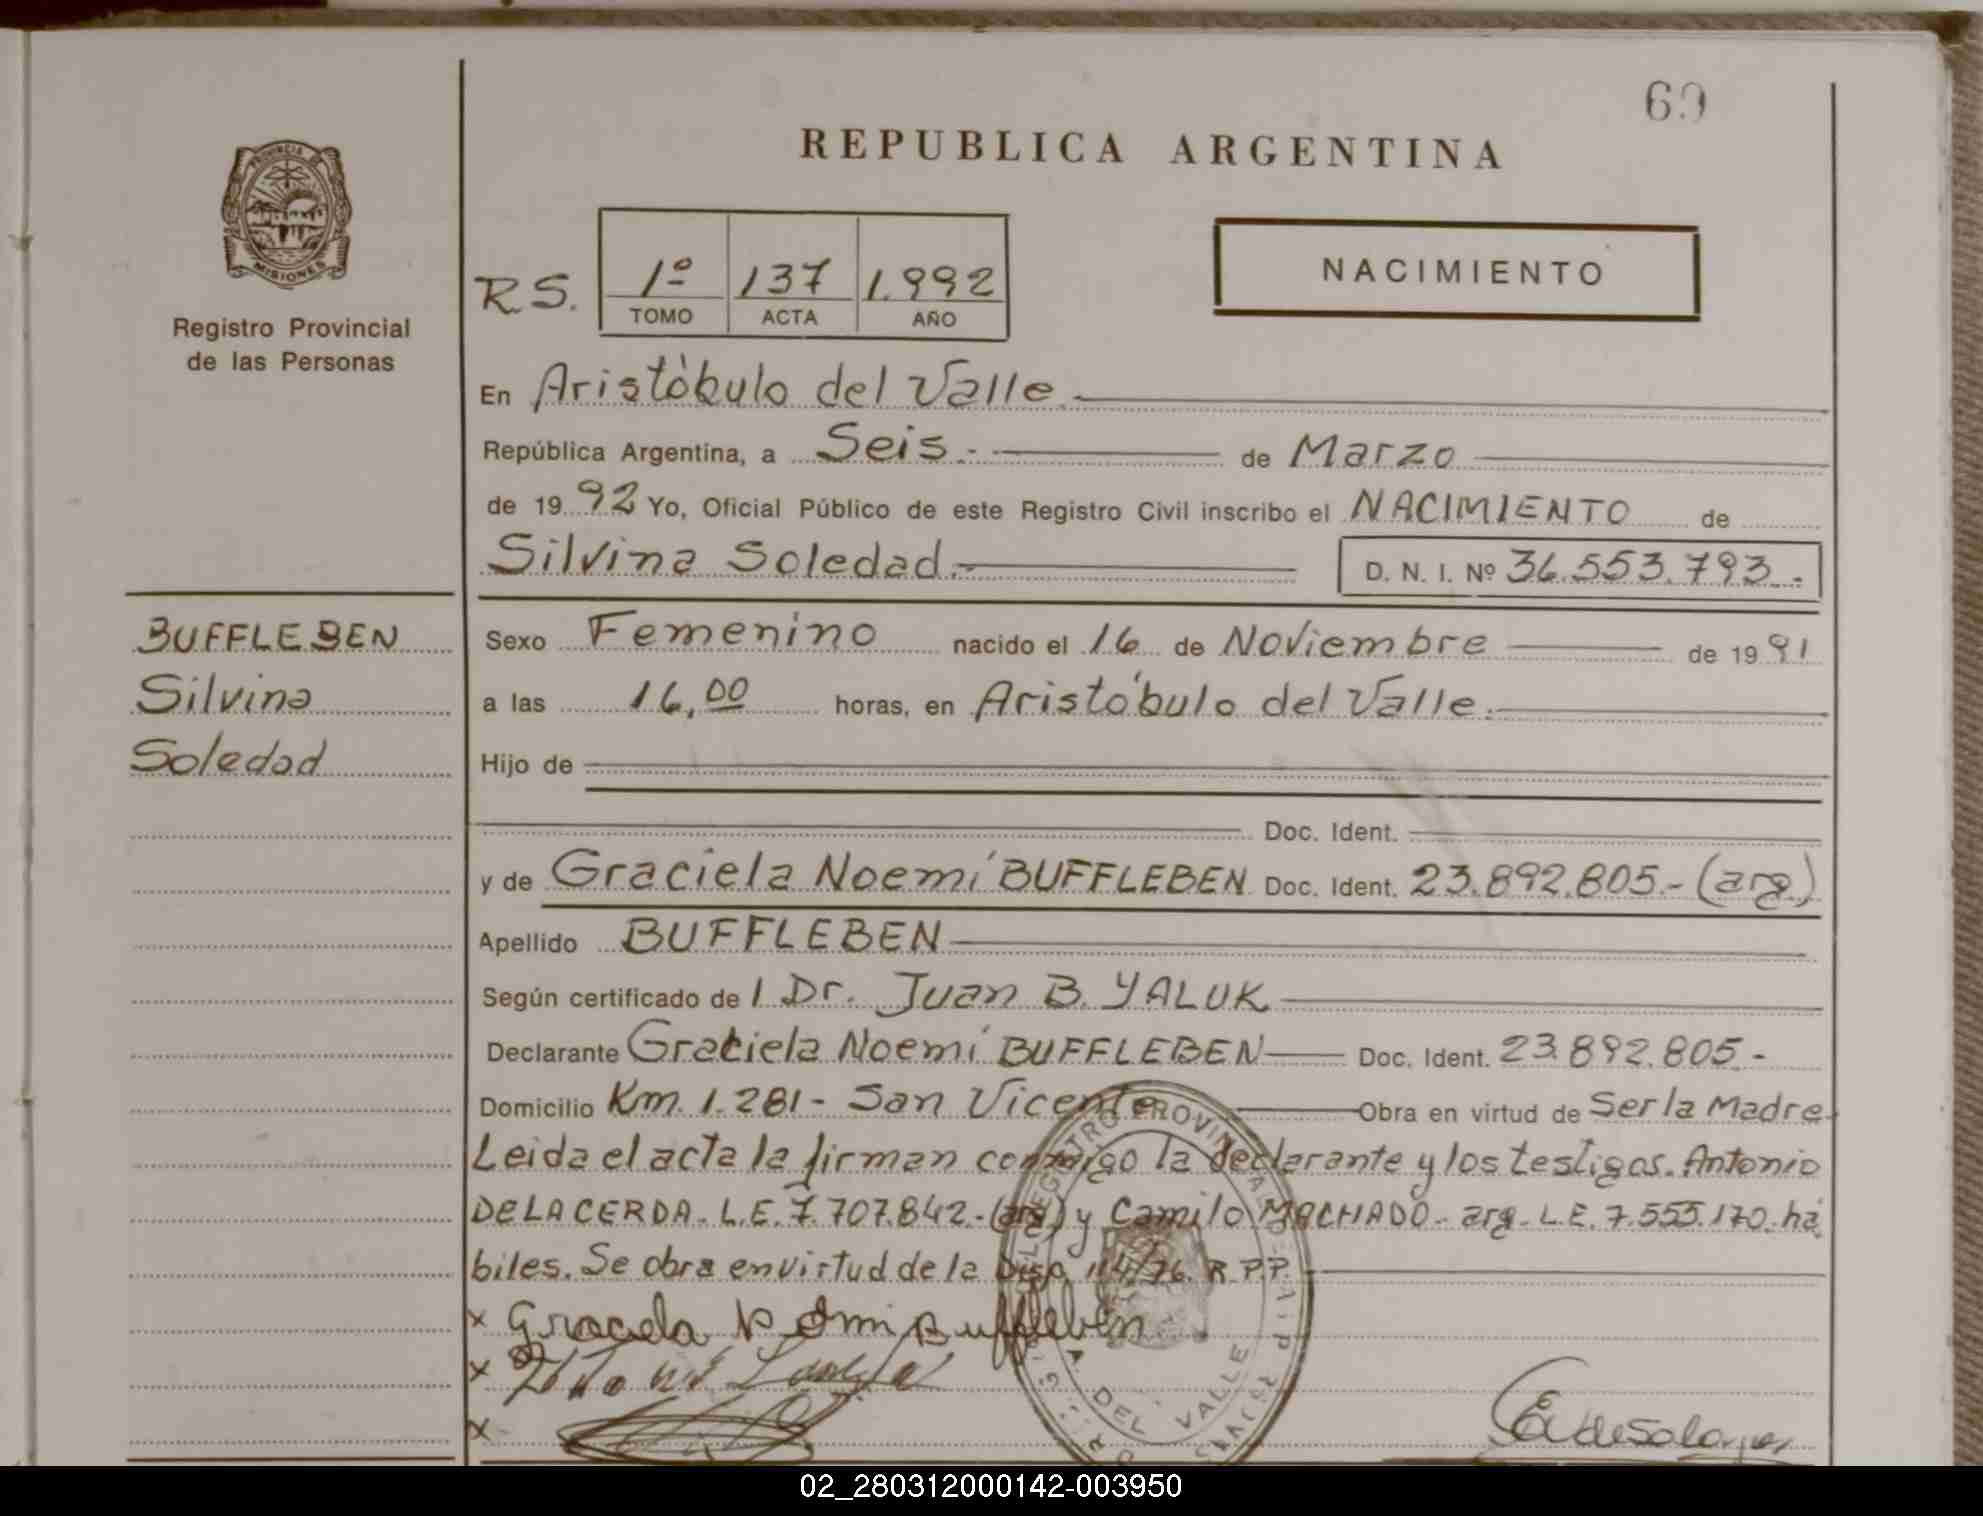 69
REPUBLICA ARGENTINA
PROVINCIA DE
MISIONES
Registro Provincial
de las Personas
R.S.
1º 137 1.992
TOMO ACTA AÑO
NACIMIENTO
En Aristóbulo del Valle.
República Argentina, a Seis.- de Marzo
de 1992 Yo, Oficial Público de este Registro Civil inscribo el NACIMIENTO de
Silvina Soledad.- D. N. I. Nº 36.553.793.-
BUFFLEBEN
Silvina
Soledad
Sexo Femenino nacido el 16 de Noviembre de 1991
a las 16,00 horas, en Aristóbulo del Valle.
Hijo de
Doc. Ident.
y de Graciela Noemí BUFFLEBEN Doc. Ident. 23.892.805.- (arg.)
Apellido BUFFLEBEN
Según certificado del Dr. Juan B. YALUK
Declarante Graciela Noemí BUFFLEBEN Doc. Ident. 23.892.805.-
Domicilio Km. 1.281 - San Vicente Obra en virtud de Ser la Madre
Leida el acta la firman conmigo la declarante y los testigos. Antonio
DE LA CERDA. L.E. 7.707.842.- (arg) y Camilo MACHADO - arg. L.E. 7.555.170. há
biles. Se obra en virtud de la Disp. 114/76. R.P.P.
x Graciela Noemi Buffleben
x
x
REGISTRO PROVINCIAL DE
DEL VALLE
02_280312000142-003950